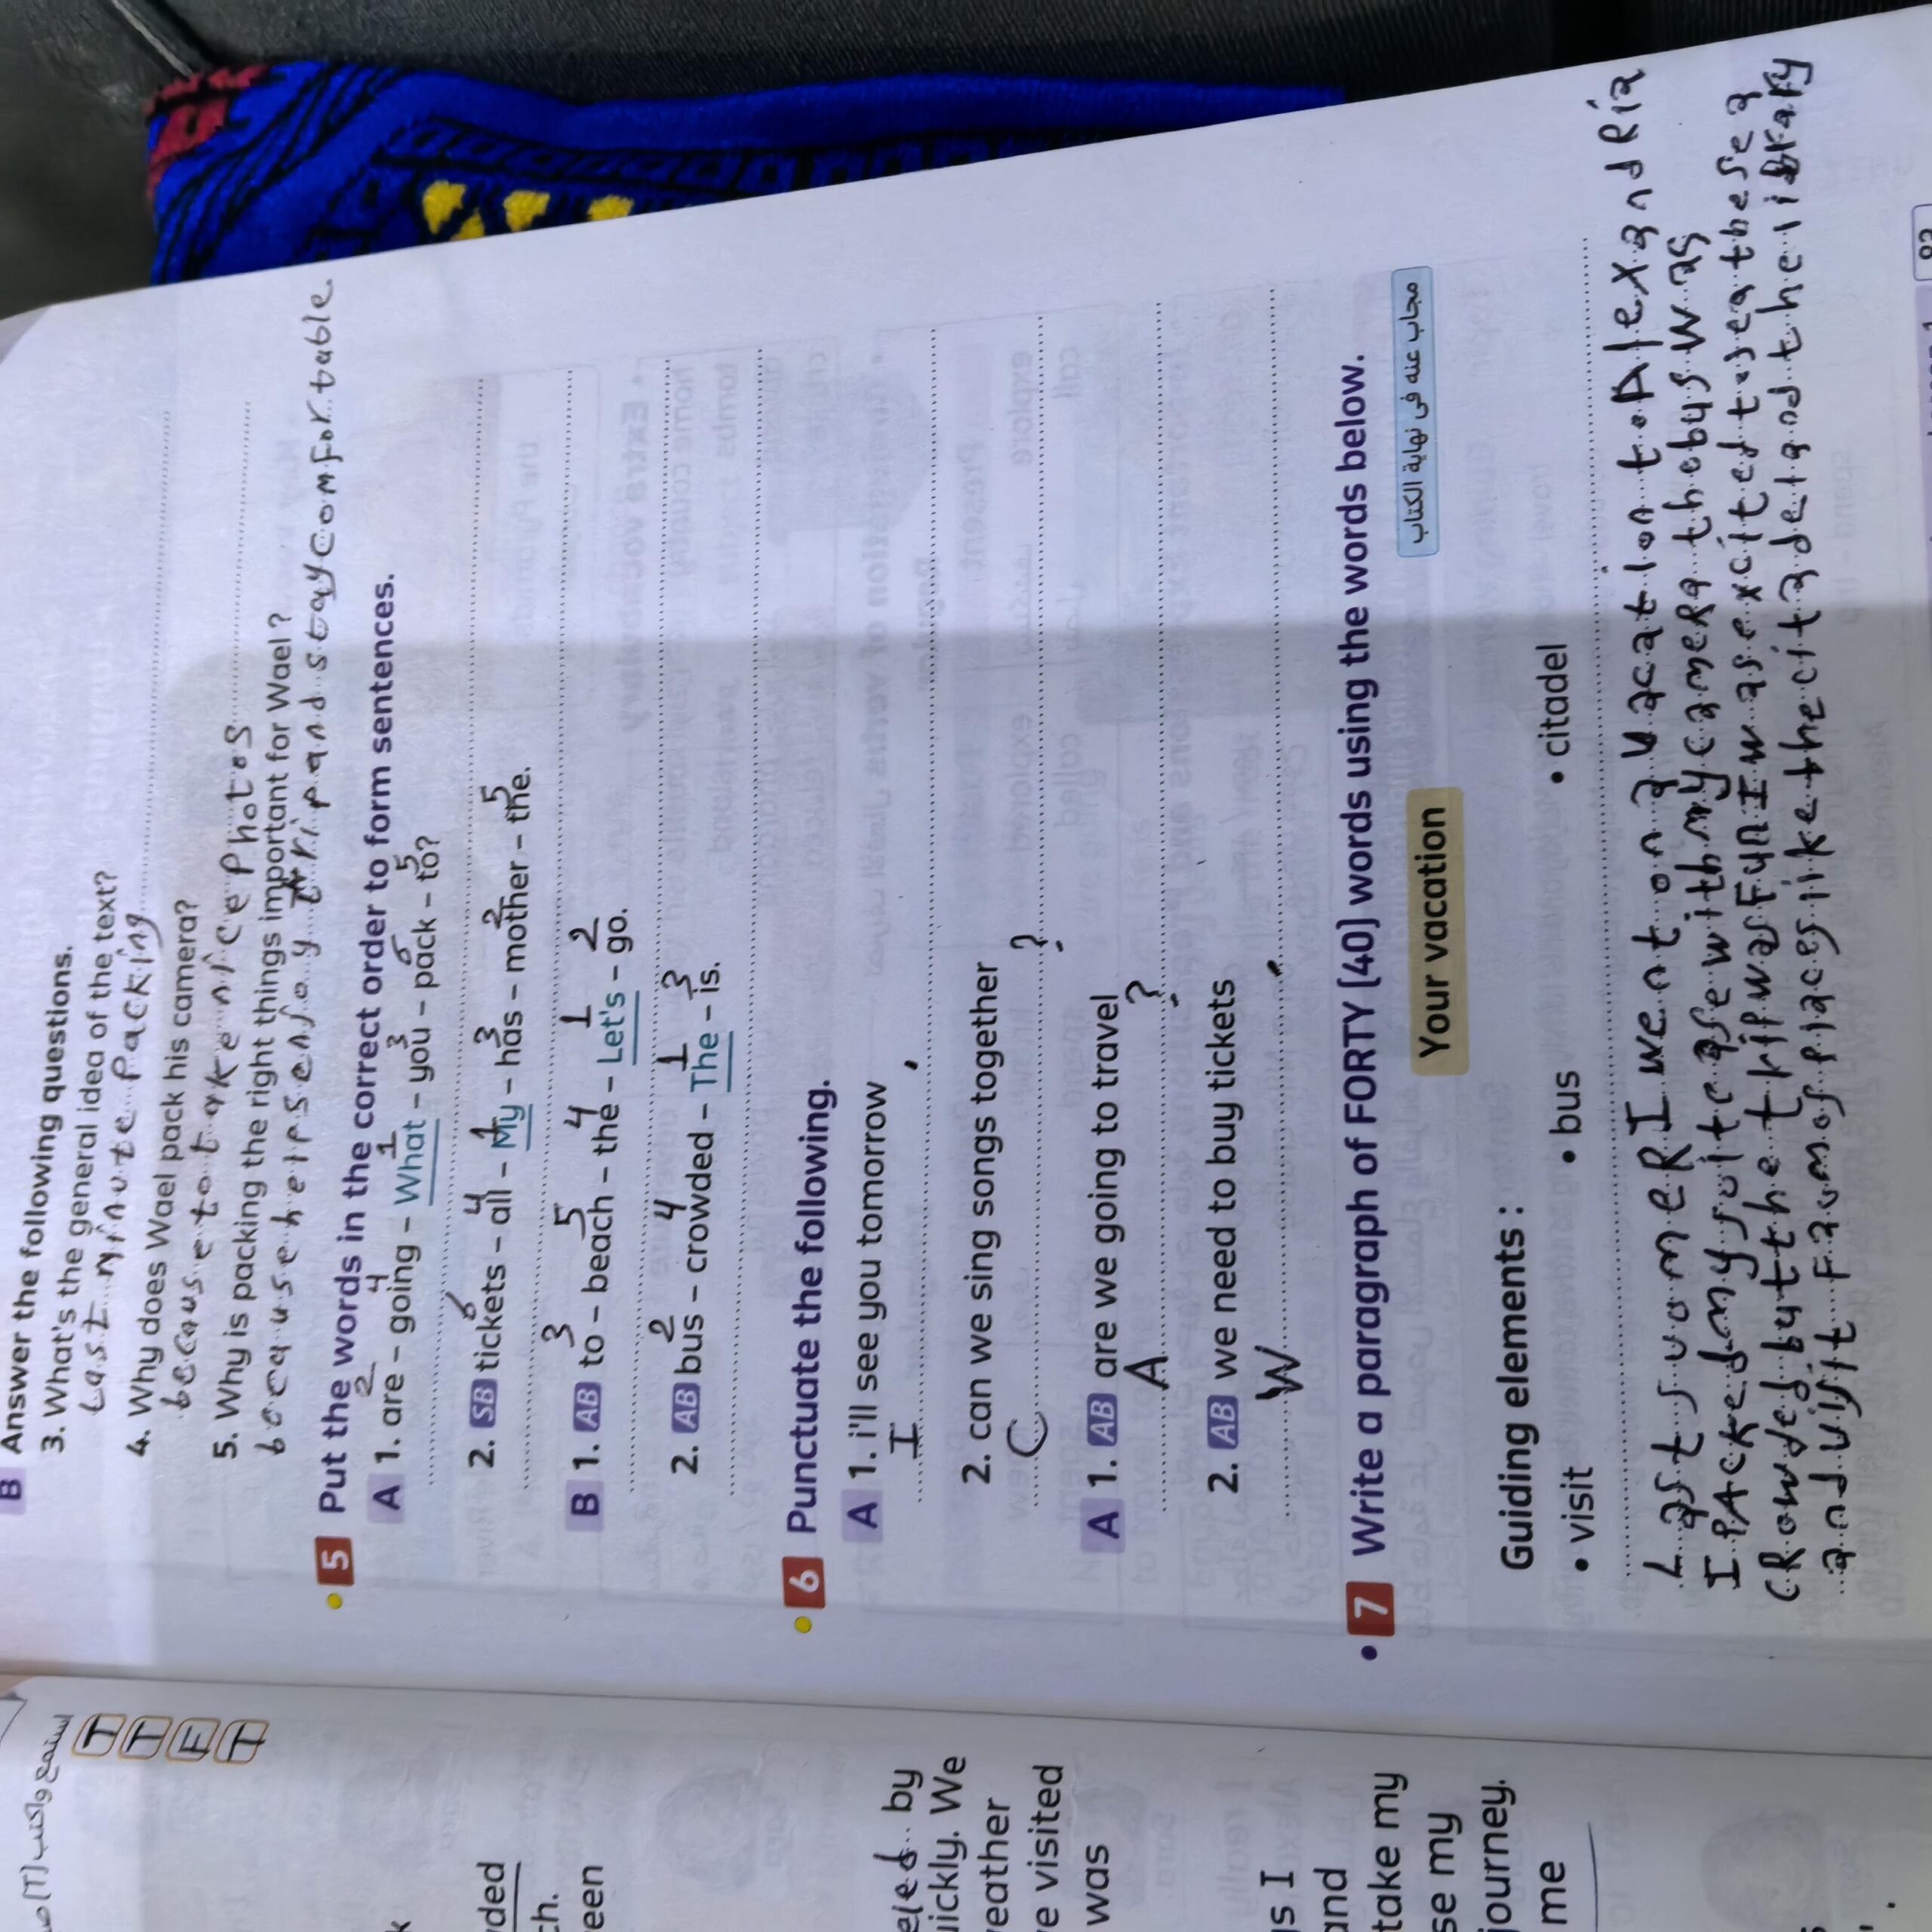 B Answer the following questions.
3. What's the general idea of the text?
Last minute packing
4. Why does Wael pack his camera?
because to take nice Photos
5. Why is packing the right things important for Wael ?
because helps enjoy trip and stay comfortable.
5 Put the words in the correct order to form sentences.
2 4 1 3 6 5
A 1. are – going – What – you – pack – to?
6 4 1 3 2 5
2. SB tickets – all – My – has – mother – the.
3 5 4 1 2
B 1. AB to – beach – the – Let's – go.
2 4 1 3
2. AB bus – crowded – The – is.
6 Punctuate the following.
A 1. i'll see you tomorrow
I .
2. can we sing songs together
C ?
A 1. AB are we going to travel
A ?
2. AB we need to buy tickets
W .
7 Write a paragraph of FORTY (40) words using the words below.
مجاب عنه فى نهاية الكتاب
Your vacation
Guiding elements :
• visit • bus • citadel
Last sumer I went on a vacation to Alexandria
I PAcked my suitcase with my camera the bus was
cRowded but the trip was Fun I was excited to see the sea
and visit Famos places like the citadel and the library
استمع واكتب (T)
T
T
F
T
ded
ch.
een
eled by
uickly. We
eather
e visited
was
gs I
and
take my
se my
journey.
me